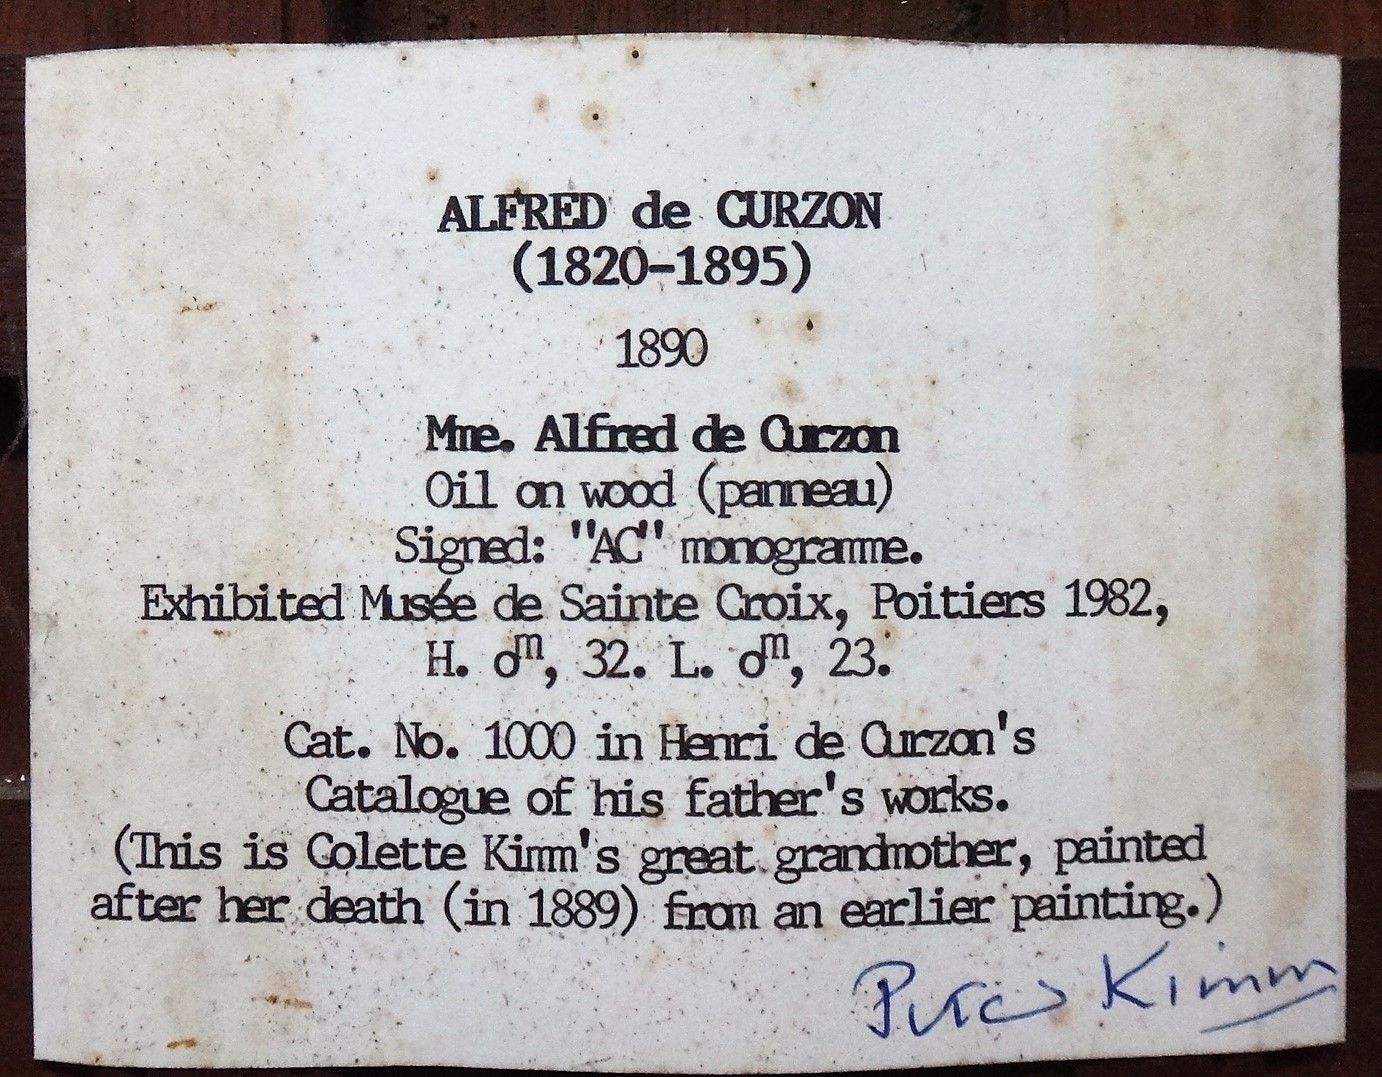 ALFRED de CURZON
(1820-1895)
1890
Mme. Alfred de Curzon
Oil on wood (panneau)
Signed: "AC" monogramme.
Exhibited Musée de Sainte Croix, Poitiers 1982,
H. oᵐ, 32. L. oᵐ, 23.
Cat. No. 1000 in Henri de Curzon's
Catalogue of his father's works.
(This is Colette Kimm's great grandmother, painted
after her death (in 1889) from an earlier painting.)
Peter Kimm